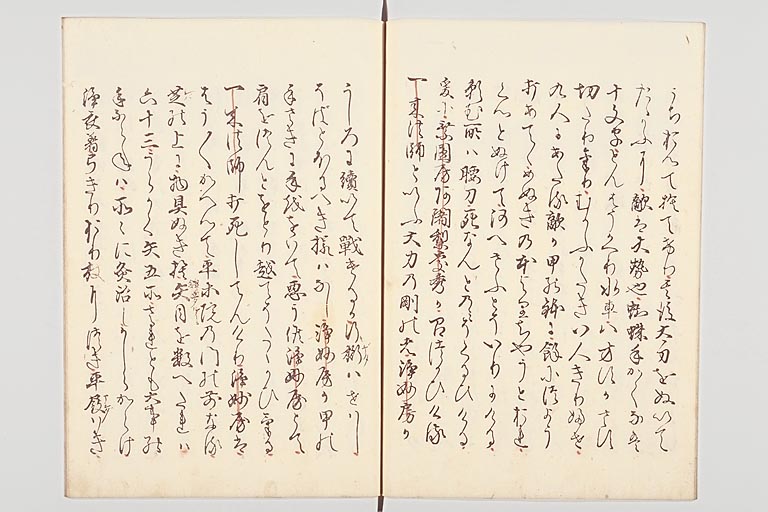 うちおんて捨てけり其後太刀をぬいて
たゝかふに敵は大勢也蜘蛛手かくなは
十文字とんほうかへり水車八方すかさす
切たりけりむかふかたき八人きりふせ
九人にあたる敵か甲の鉢に餘につよう
打あてゝめぬきの本よりちやうとおれ
くんとぬけて河へさふといりにける
頼む所は腰刀死なんとのみそくるひける
爰に乗圓房阿闍梨慶秀か召つかひける
一来法師といふ大力の剛の者浄妙房か
うしろに續いて戦ひけるか行桁はせはし
そはとほるへき様はなし浄妙房か甲の
手さきに手ををいて悪う候浄妙房とて
肩をつんとをとり越てそたゝかひける
一来法師打死してんけり浄妙房は
はう〳〵かへつて平等院の門の前なる
芝の上に物具ぬき捨矢目を数へたれは
六十三うらかく矢五所されとも大事の
手ならねは所々に灸治してかしらからけ
浄衣着弓きりおり杖につき平履はき